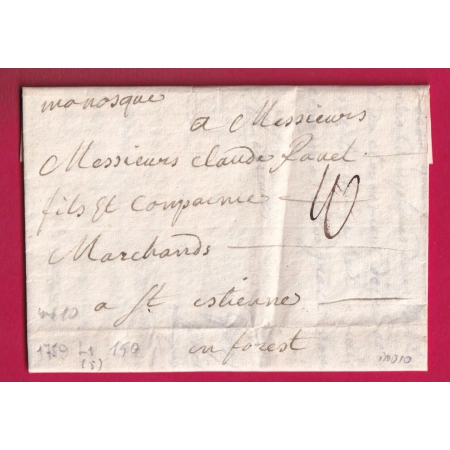 manosque
a Messieurs
Messieurs Claude Ravel
fils et Compainie
Marchands
a St. estienne
en forest
1750 L1 150
(5)
indio